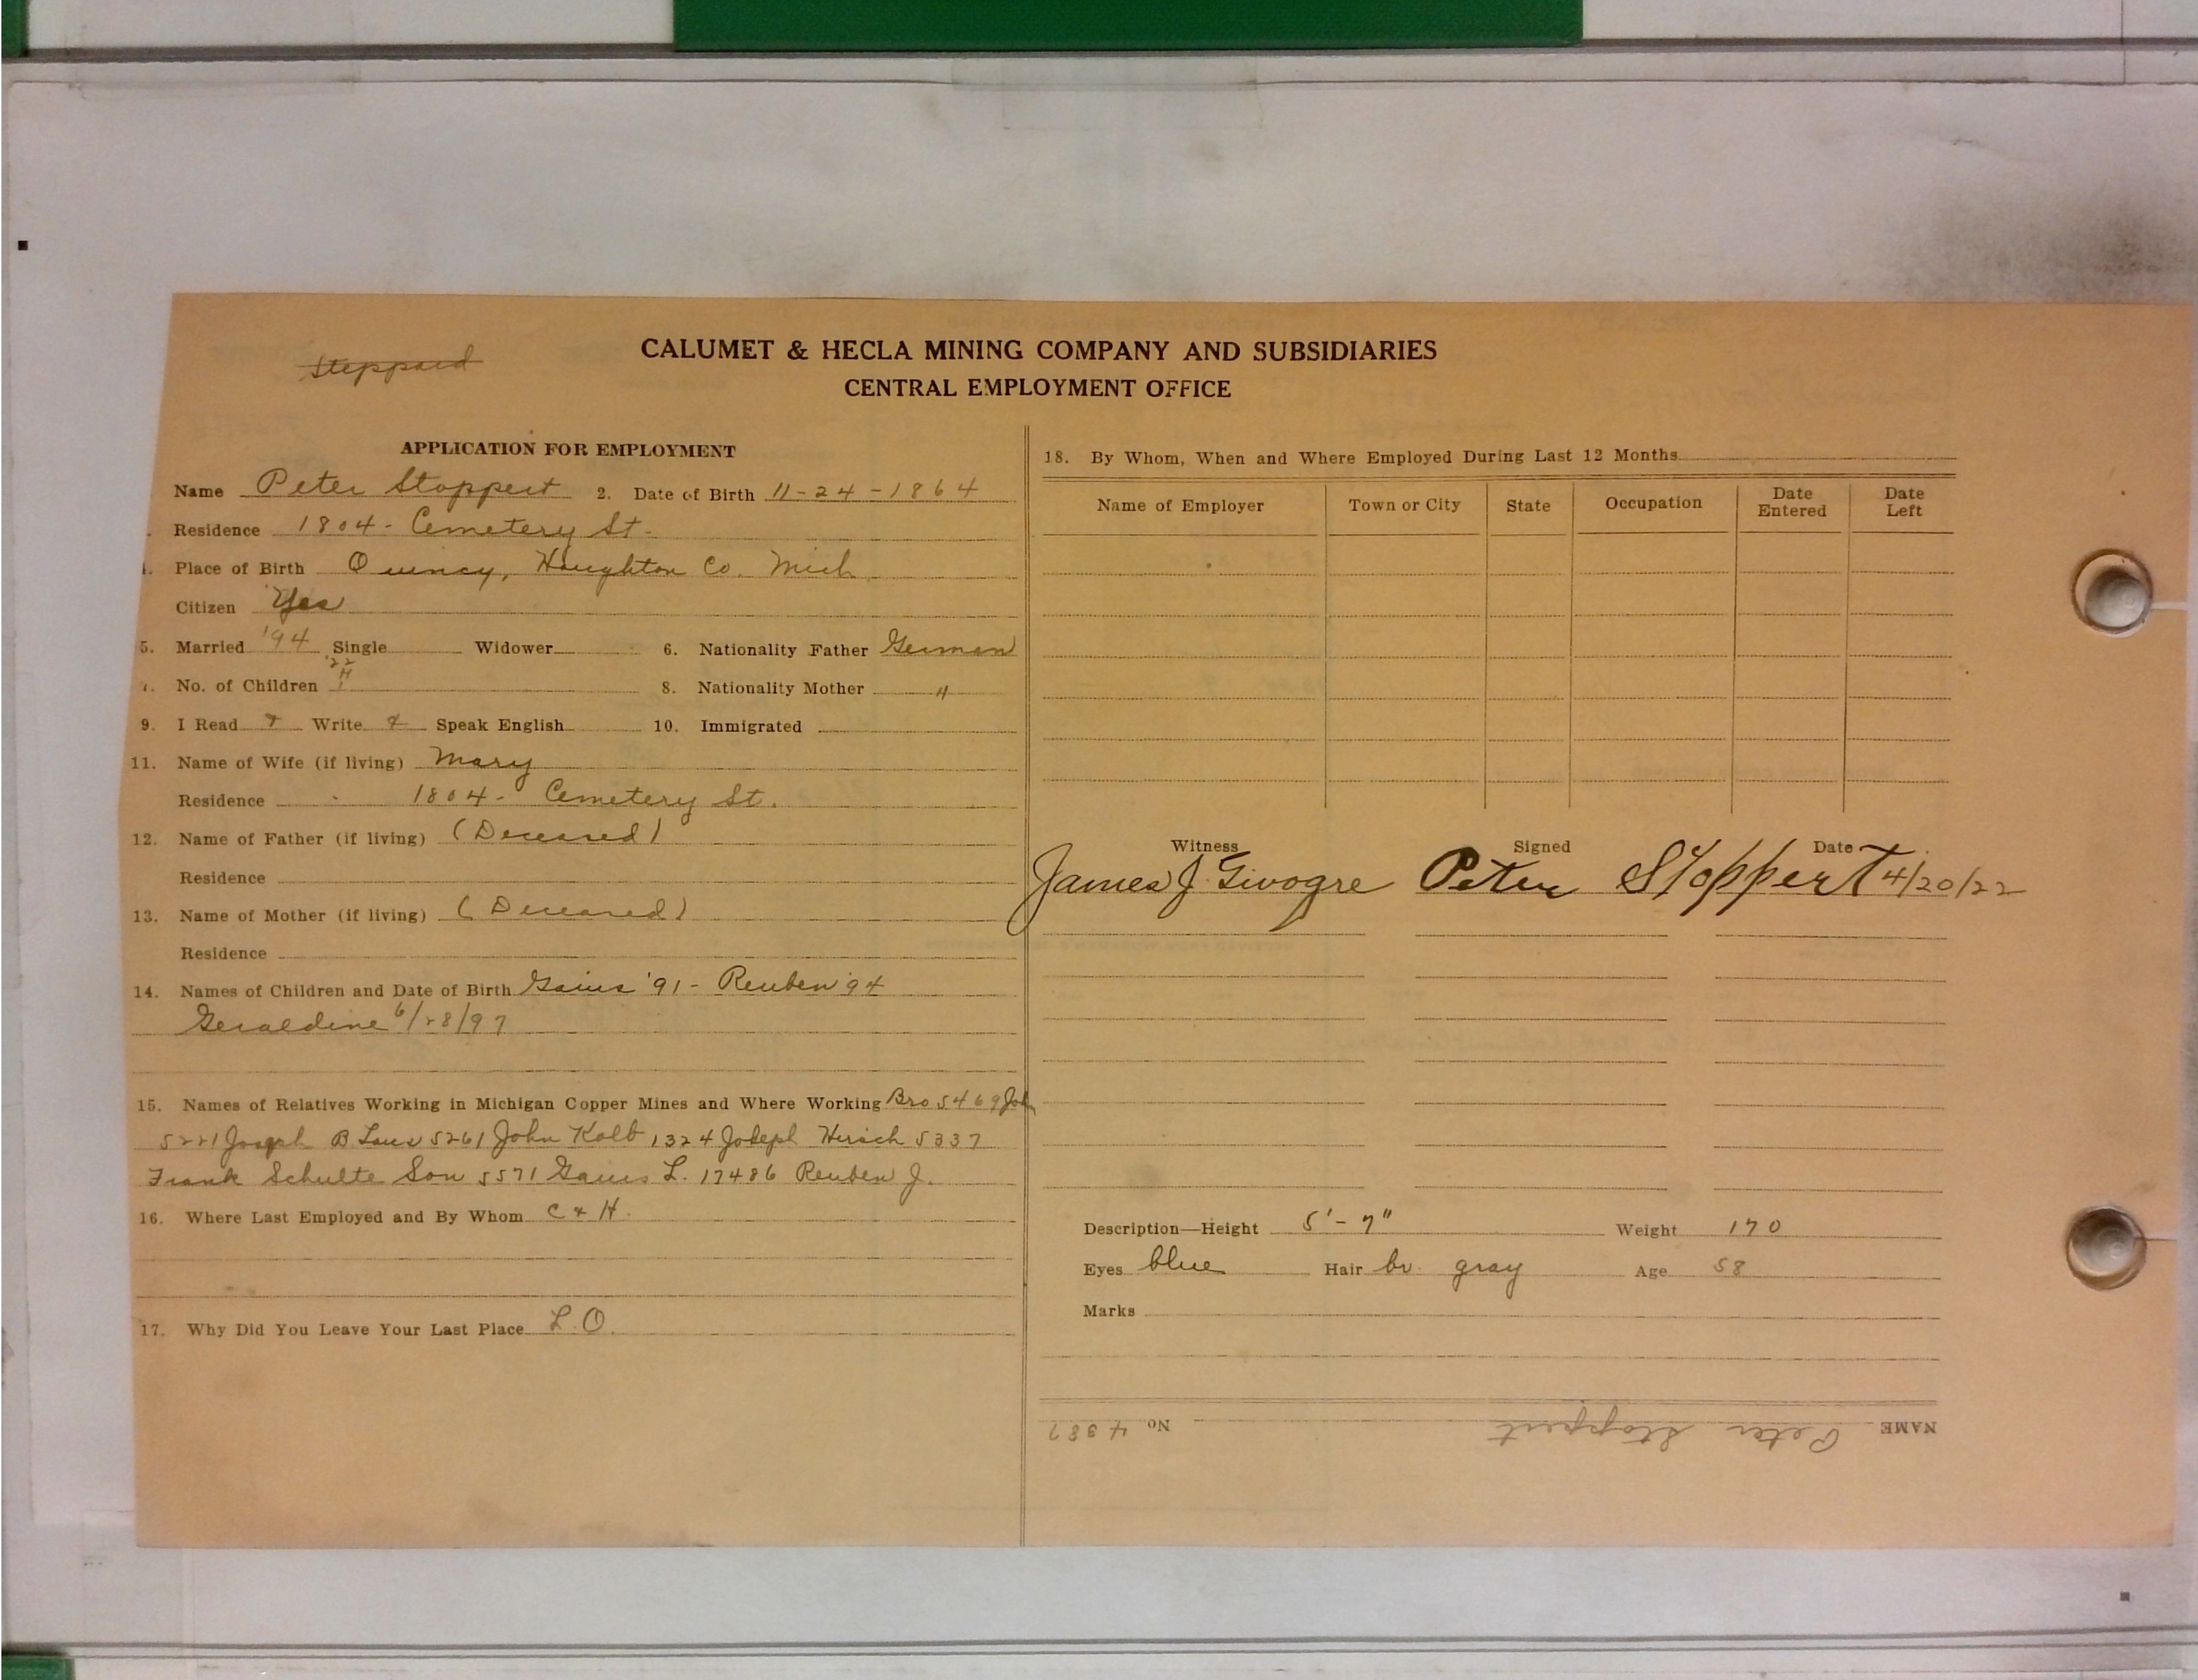 Steppard
CALUMET & HECLA MINING COMPANY AND SUBSIDIARIES
CENTRAL EMPLOYMENT OFFICE
APPLICATION FOR EMPLOYMENT
Name Peter Stoppert 2. Date of Birth 11-24-1864
Residence 1804 - Cemetery St.
Place of Birth Quincy, Houghton Co. Mich.
Citizen Yes
5. Married '94 Single Widower 6. Nationality Father German
'22
No. of Children 8. Nationality Mother "
9. I Read Write Speak English 10. Immigrated
11. Name of Wife (if living) Mary
Residence 1804 - Cemetery St.
12. Name of Father (if living) (Deceased)
Residence
13. Name of Mother (if living) (Deceased)
Residence
14. Names of Children and Date of Birth Gaius '91 - Reuben '94
Geraldine 6/28/97
15. Names of Relatives Working in Michigan Copper Mines and Where Working Bro 5469 John
5221 Joseph B. Laws 5261 John Kolb 1324 Joseph Hirsch 5337
Frank Schulte Son 5571 Gaius L. 17486 Reuben J.
16. Where Last Employed and By Whom C & H.
17. Why Did You Leave Your Last Place L.O.
18. By Whom, When and Where Employed During Last 12 Months
Name of Employer Town or City State Occupation Date Entered Date Left
Witness Signed Date
James J. Givogre Peter Stoppert 4/20/22
Description—Height 5'-7" Weight 170
Eyes blue Hair br. gray Age 58
Marks
NAME Peter Stoppert No. 4387